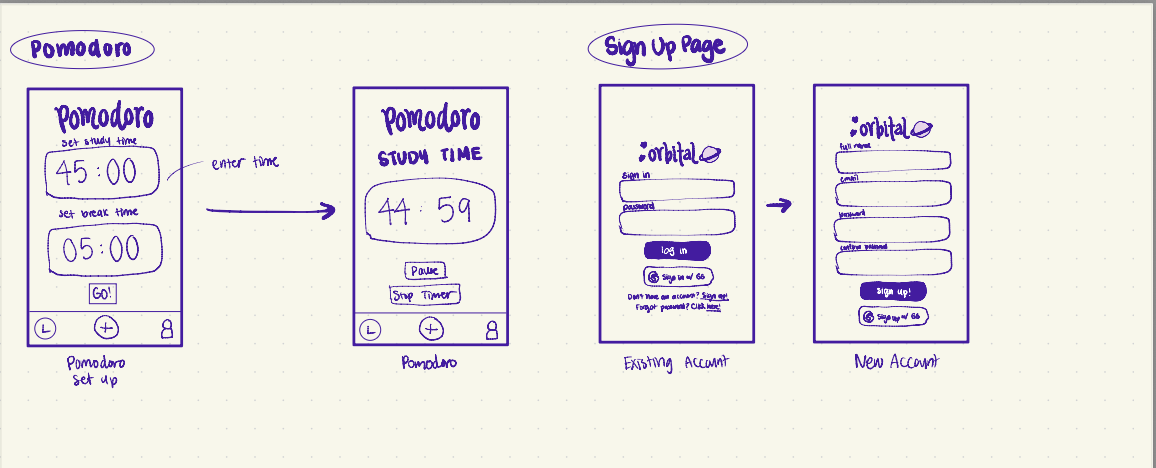 Pomodoro
Pomodoro
set study time
45:00
enter time
set break time
05:00
GO!
L
Pomodoro
set up
Pomodoro
STUDY TIME
44:59
Pause
Stop Timer
L
Pomodoro
Sign Up Page
orbital
sign in
password
log in
Sign in w/ GG
Don't have an account? Sign up!
Forgot password? Click here!
Existing Account
orbital
full name
email
password
confirm password
sign up!
Sign up w/ GG
New Account